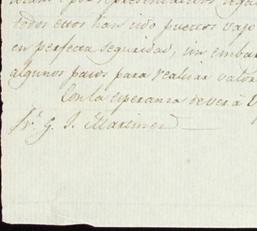 todos ellos han sido puestos vajo
en perfecta seguridad, sin embar
algunos pasos para realizar valor
Con la esperanza de ver à V
Sr. G. J. Martinez